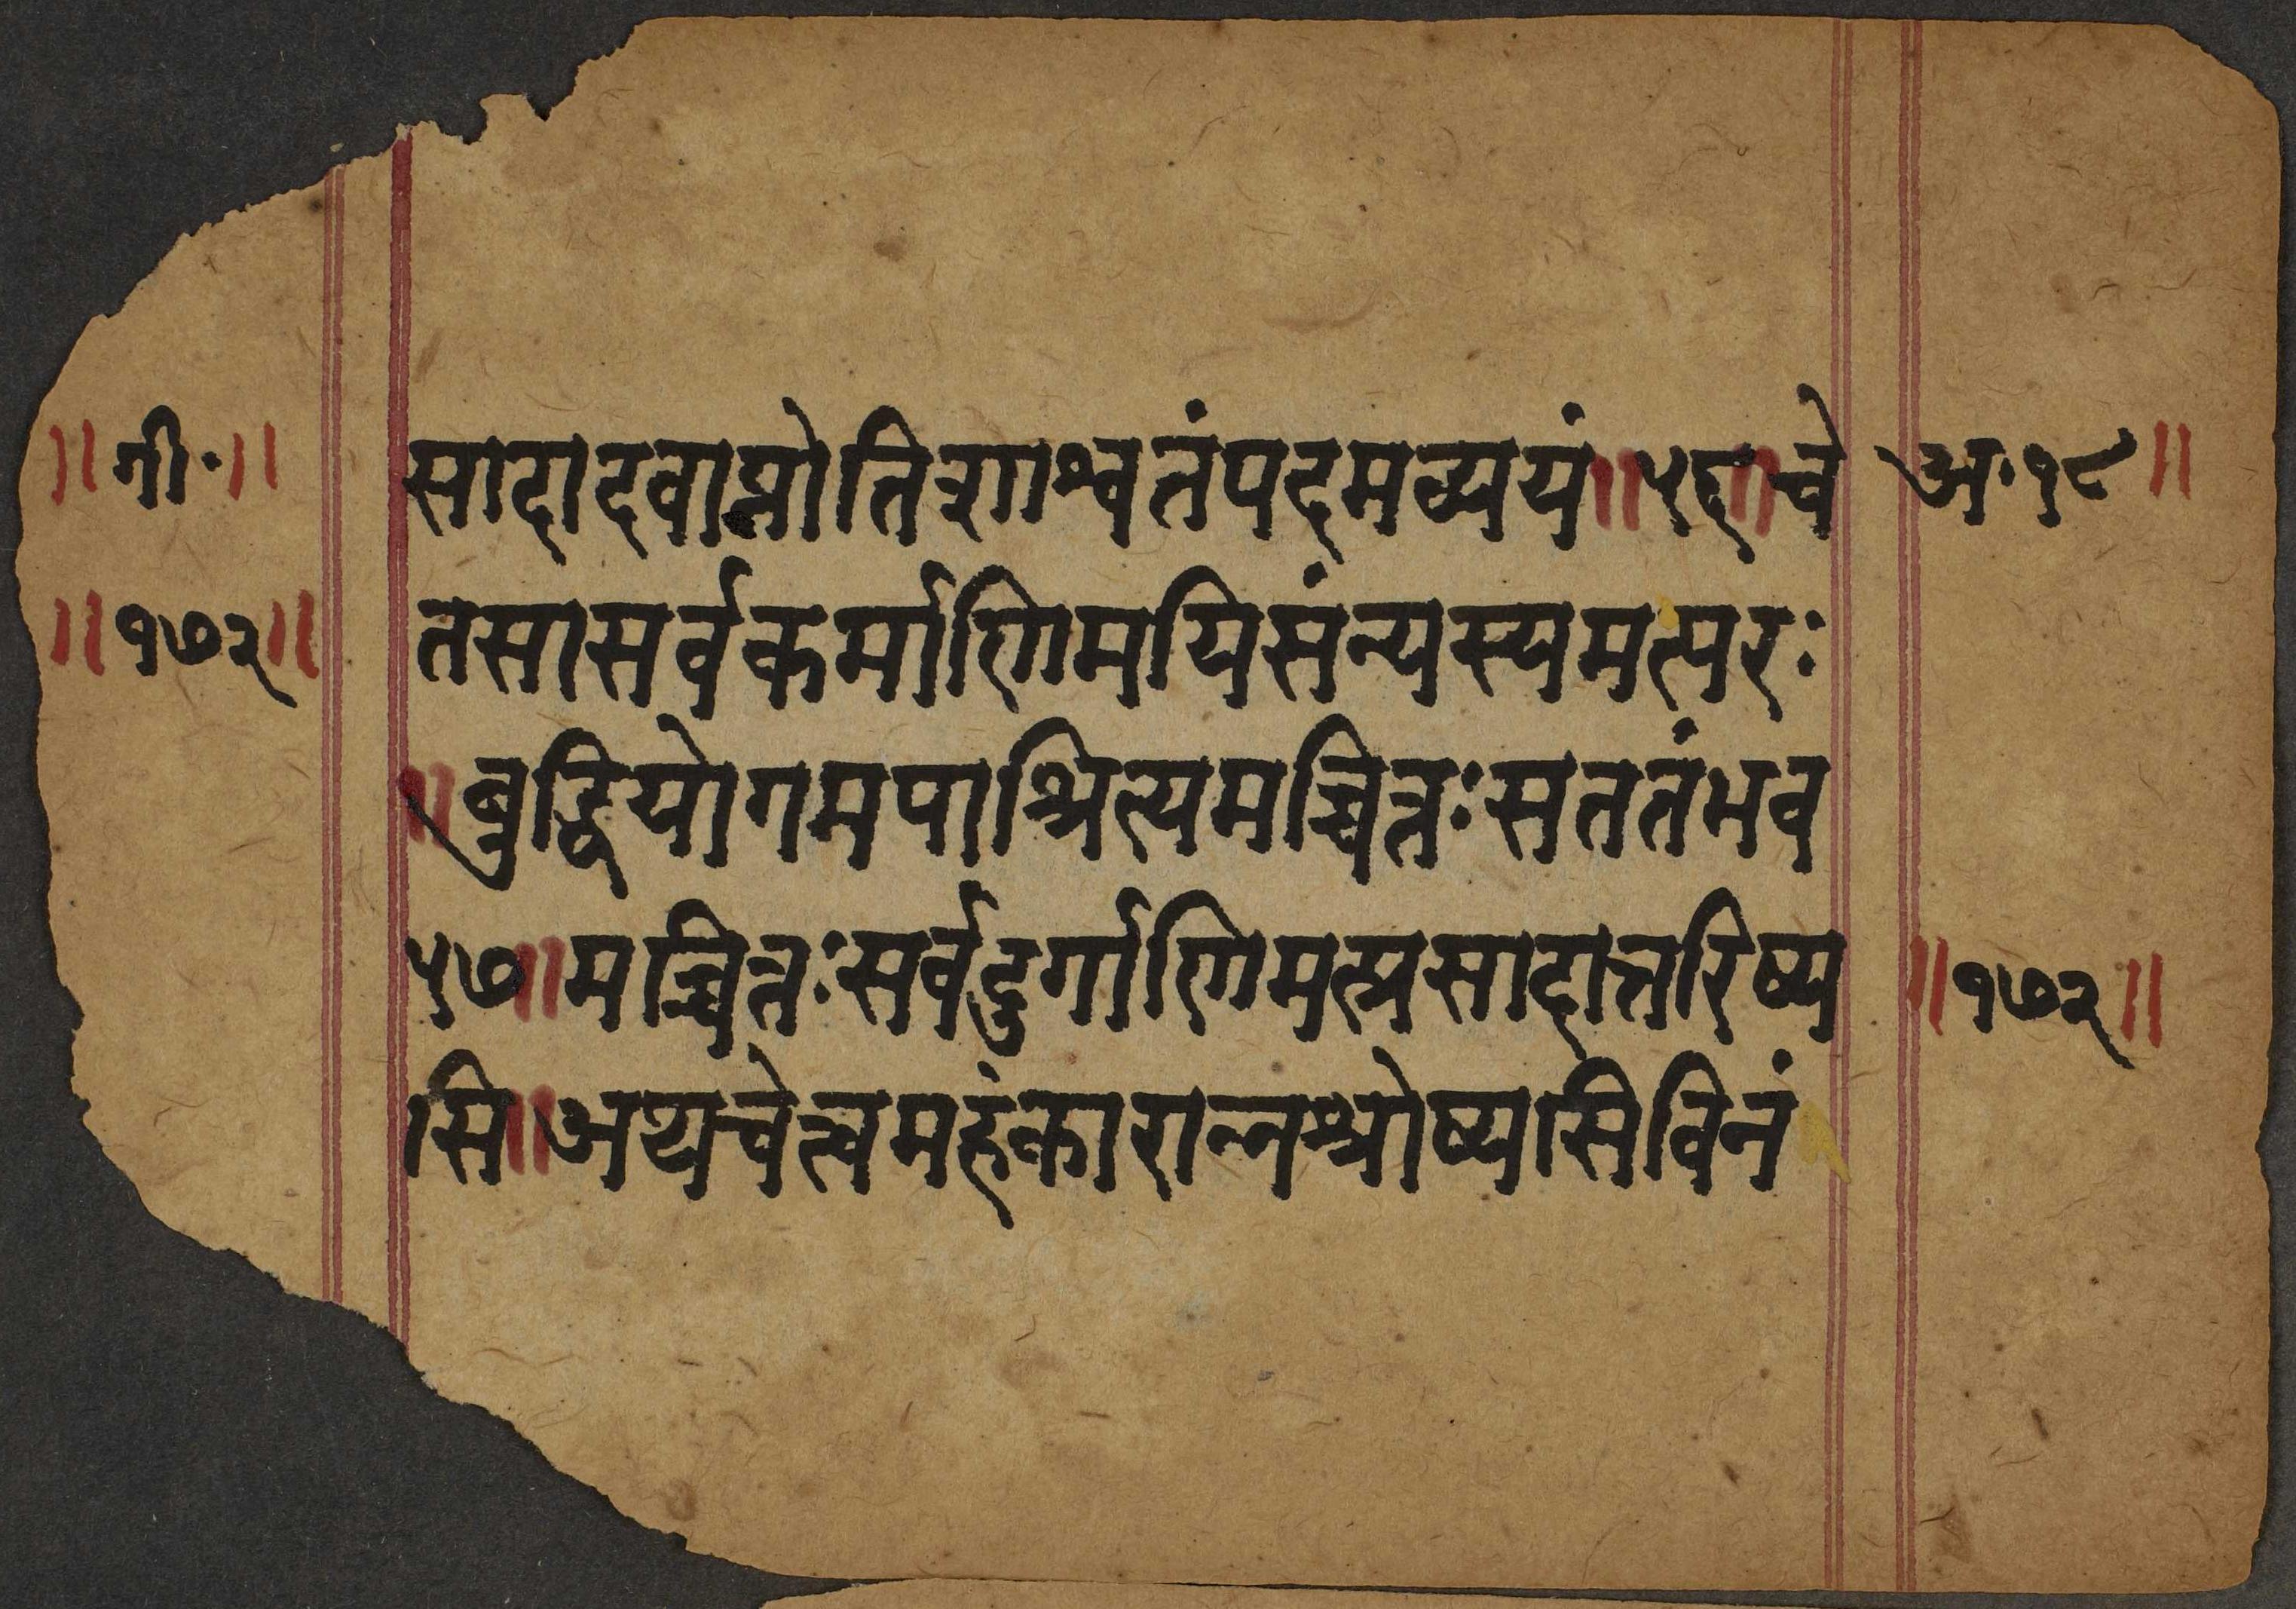 ॥गी॰॥ सादादवाप्नोतिशाश्वतंपदमव्ययं॥५६॥चे अ॰१८॥
॥१७२॥ तसासर्वकर्माणिमयिसंन्यस्यमत्परः
॥बुद्धियोगमपाश्रित्यमच्चित्तःसततंभव
५७॥मच्चित्तःसर्वदुर्गाणिमत्प्रसादात्तरिष्य ॥१७२॥
सि॥अथचेत्त्वमहंकारान्नश्रोष्यसिविनं